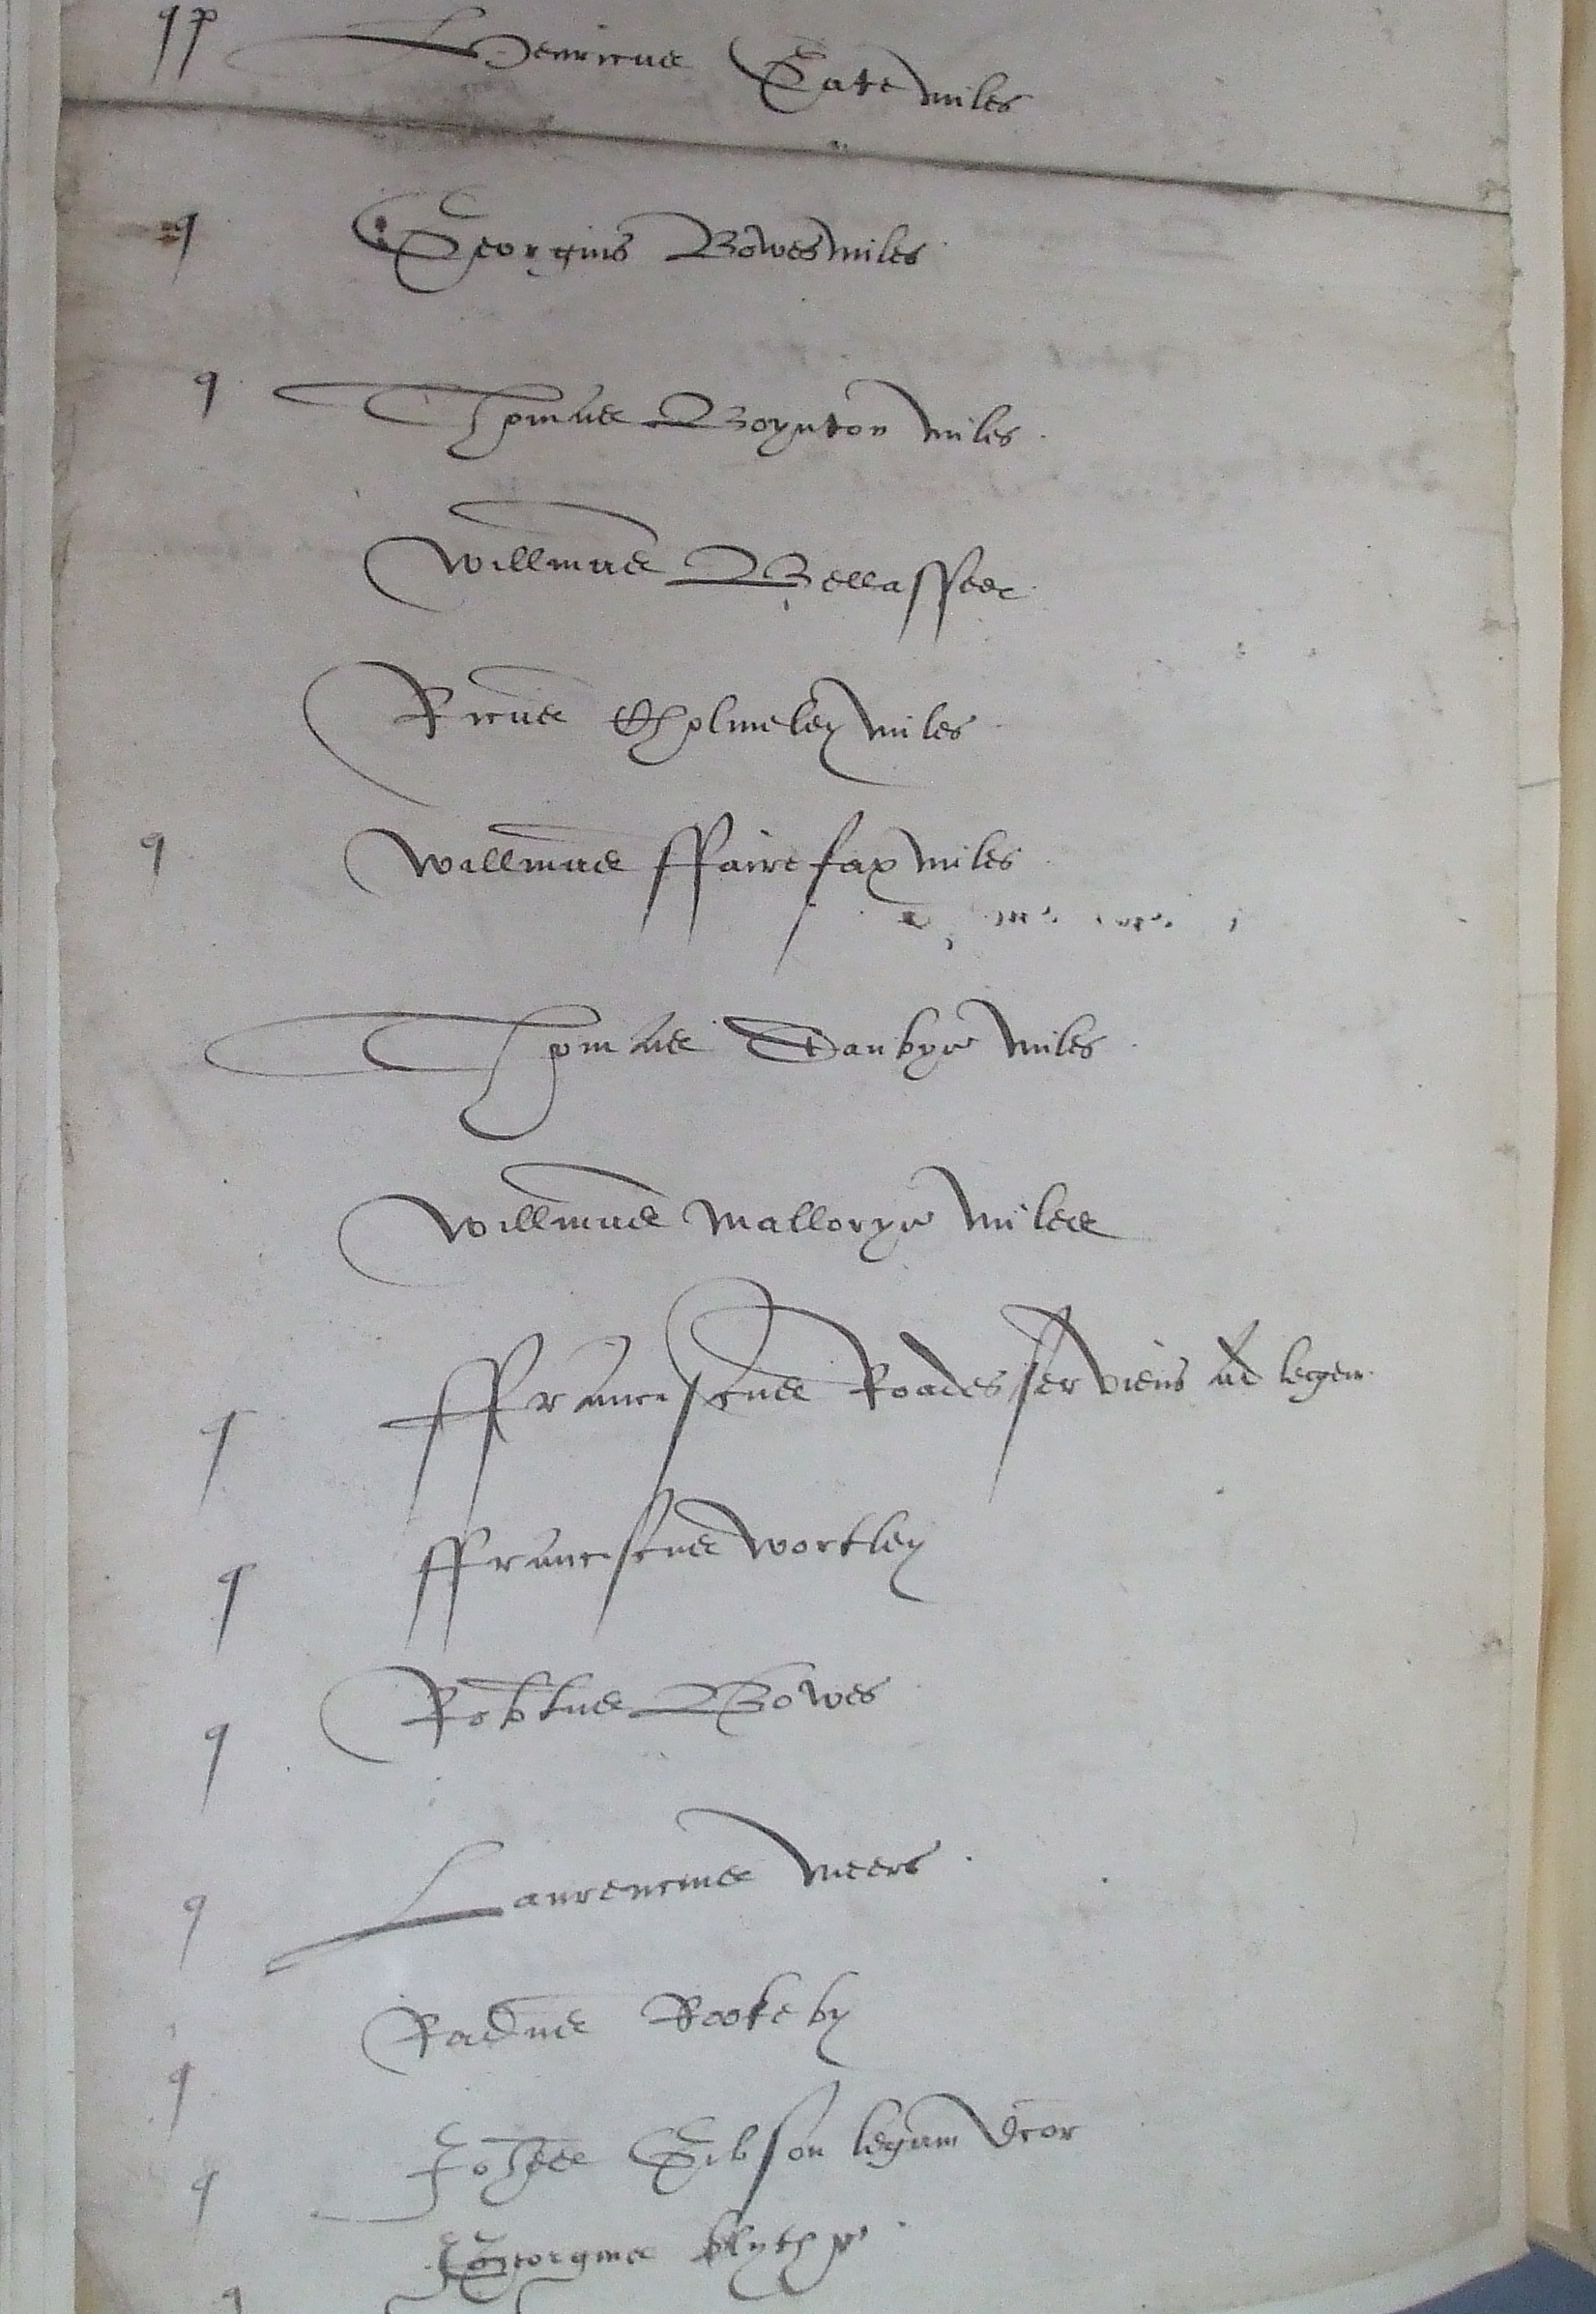 qp Henricus Gate miles
q Georgius Bowes miles
q Thomas Boynton miles
Willmus Bellasses
Ricus Cholmeley miles
q Willmus ffairefax miles
Thomas Danbye miles
Willmus Mallorye miles
q ffranciscus Roades serviens ad legem
q ffranciscus Wortley
q Robtus Bowes
q Laurencius Meers
q Radus Rookeby
q Johes Gibson legum dcor
q Georgius Blythe